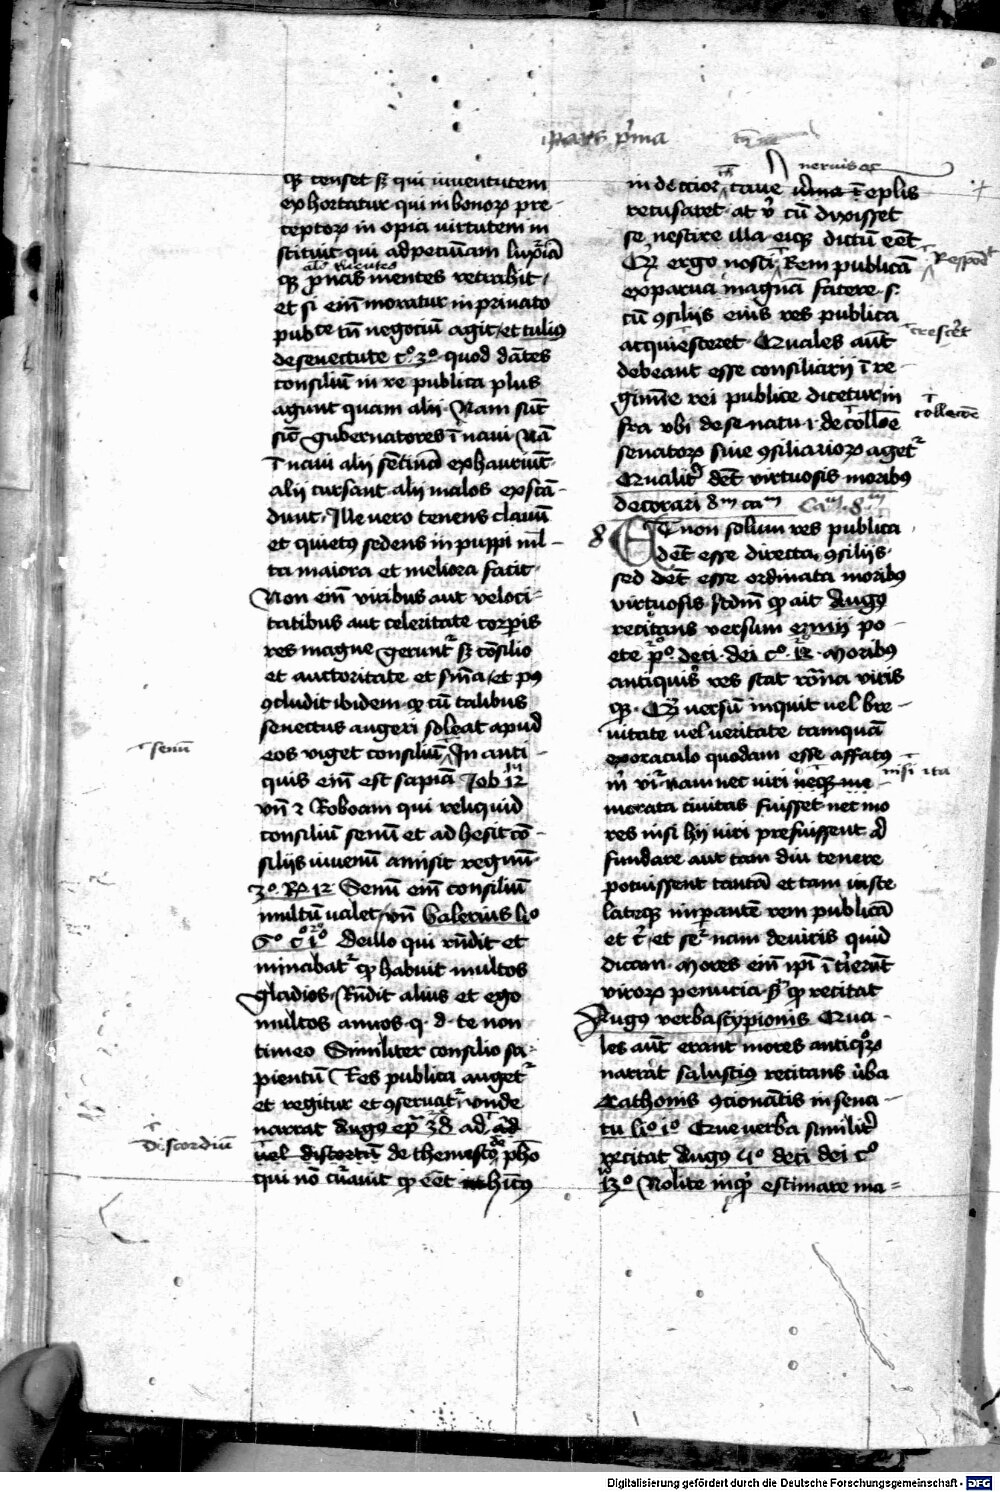 pars p̄ma
q̄ censet s̄ qui iuuentutem
exhortatur qui in bonoꝝ pre-
ceptoꝝ in opia uirtutem in
stituit qui ad pecūiam luxūiā
q̄ p̄nas mentes retrahit
et si eīm moratur in priuato
publice tn̄ negociū agit et tulius
de senectute c° 3° quod dātes
consiliū in re publica plus
agunt quam alii Nam sūt
sic̄ gubernatores ī naui Nā
ī naui alij sētinā exhauriūt
alij cursant alij malos exscā-
dunt Ille vero tenens clauū
et quietꝰ sedens in puppi ml-
ta maiora et meliora facit
Non eīm viribus aut veloci-
tatibus aut celeritate corporis
res magne gerunt s̄ cōsilio
et auctoritate et sn̄ia et pꝰ
ꝯcludit ibidem q̄ cū talibus
senectus augeri soleat apud
eos viget consiliū In anti-
senū
quis eīm est sapiā Job 12
vn̄ ⁊ Roboam qui reliquid
consiliū senū et ad hesit cō-
siliis iuuenū amisit regnū
3° R̄ 12 Senū eīm consiliū
multū ualet vn̄ Valerius li°
6° c° 1° de illo qui rn̄dit et
minabat q̄ habuit multos
gladios Rn̄dit alius et ego
multos annos q d te non
timeo Similiter consilio sa-
pientū Res publica auget
et regitur et ꝯseruat vnde
narrat Augꝰ ep̄ 3ā ad
discordiū
vel discorsū de themisto pħo
qui nō cūauit q̄ eēt
nerui sac
recusaret at v̄ cū dixisset
se nescire illa eiq̄ dictū eēt
Qd ergo nosti Rem publicā
Respōd
ex parua magnā facere s
cū ꝯsiliis eius res publica
cresceret
acquiesceret Quales aūt
debeant esse consiliarij ī re-
gimīe rei publice dicetur in
fra vbi de senatu i de collōe
collectōe
senatoꝝ siue ꝯsiliarioꝝ aget
Qualit̄ dēt virtuosis moribꝰ
decorari 8m cam Cam 8m
8 Et non solum res publica
dēt esse directa ꝯsiliis
sed dēt esse ordinata moribꝰ
virtuosis scdm q̄ ait Augꝰ
recitans versum ennij po-
ete p° de ci dei c° Moribꝰ
antiquis res stat rōna viris
q̄ Qd versū inquit vel bre-
uitate vel veritate tamquā
ex oraculo quodam esse affatꝰ
m vi nam nec uiri neq̄ me
nisi ita
morata ciuitas fuisset nec mo
res nisi hij uiri prefuissent ad
fundare aut tam diu tenere
potuissent tantā et tam iuste
lateq̄ imꝑantē rem publicā
et c̄ et se nam de viris quid
dicam Mores eīm ip̄i ī t̄ierūt
viroꝝ penuria s q̄ recitat
Augꝰ verba scypionis Qua-
les aūt erant mores antiqꝝ
narrat salustiꝰ recitans v̄ba
Cathonis ꝯcionātis in sena-
tu li° 1° Que verba similit̄
recitat Augꝰ 4° de ci dei c°
12° Nolite inq̄ estimare ma-
Digitalisierung gefördert durch die Deutsche Forschungsgemeinschaft - DFG